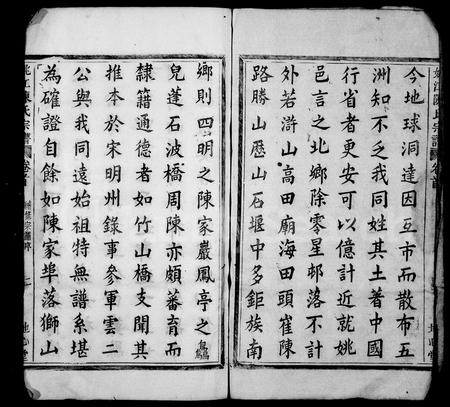 今地球洞達因互市而散布五
洲知不乏我同姓其土著中國
行省者更安可以億計近就姚
邑言之北鄉除零星邨落不計
外若滸山高田廟海田頭崔陳
路勝山歷山石堰中多鉅族南
鄉則四明之陳家巖鳳亭之
兒蓬石波橋周陳亦頗蕃育而
隸籍通德者如竹山橋支聞其
推本於宋明州錄事參軍雲二
公與我同遠始祖特無譜系堪
為確證自餘如陳家埠落獅山
姚江陳氏宗譜 卷首